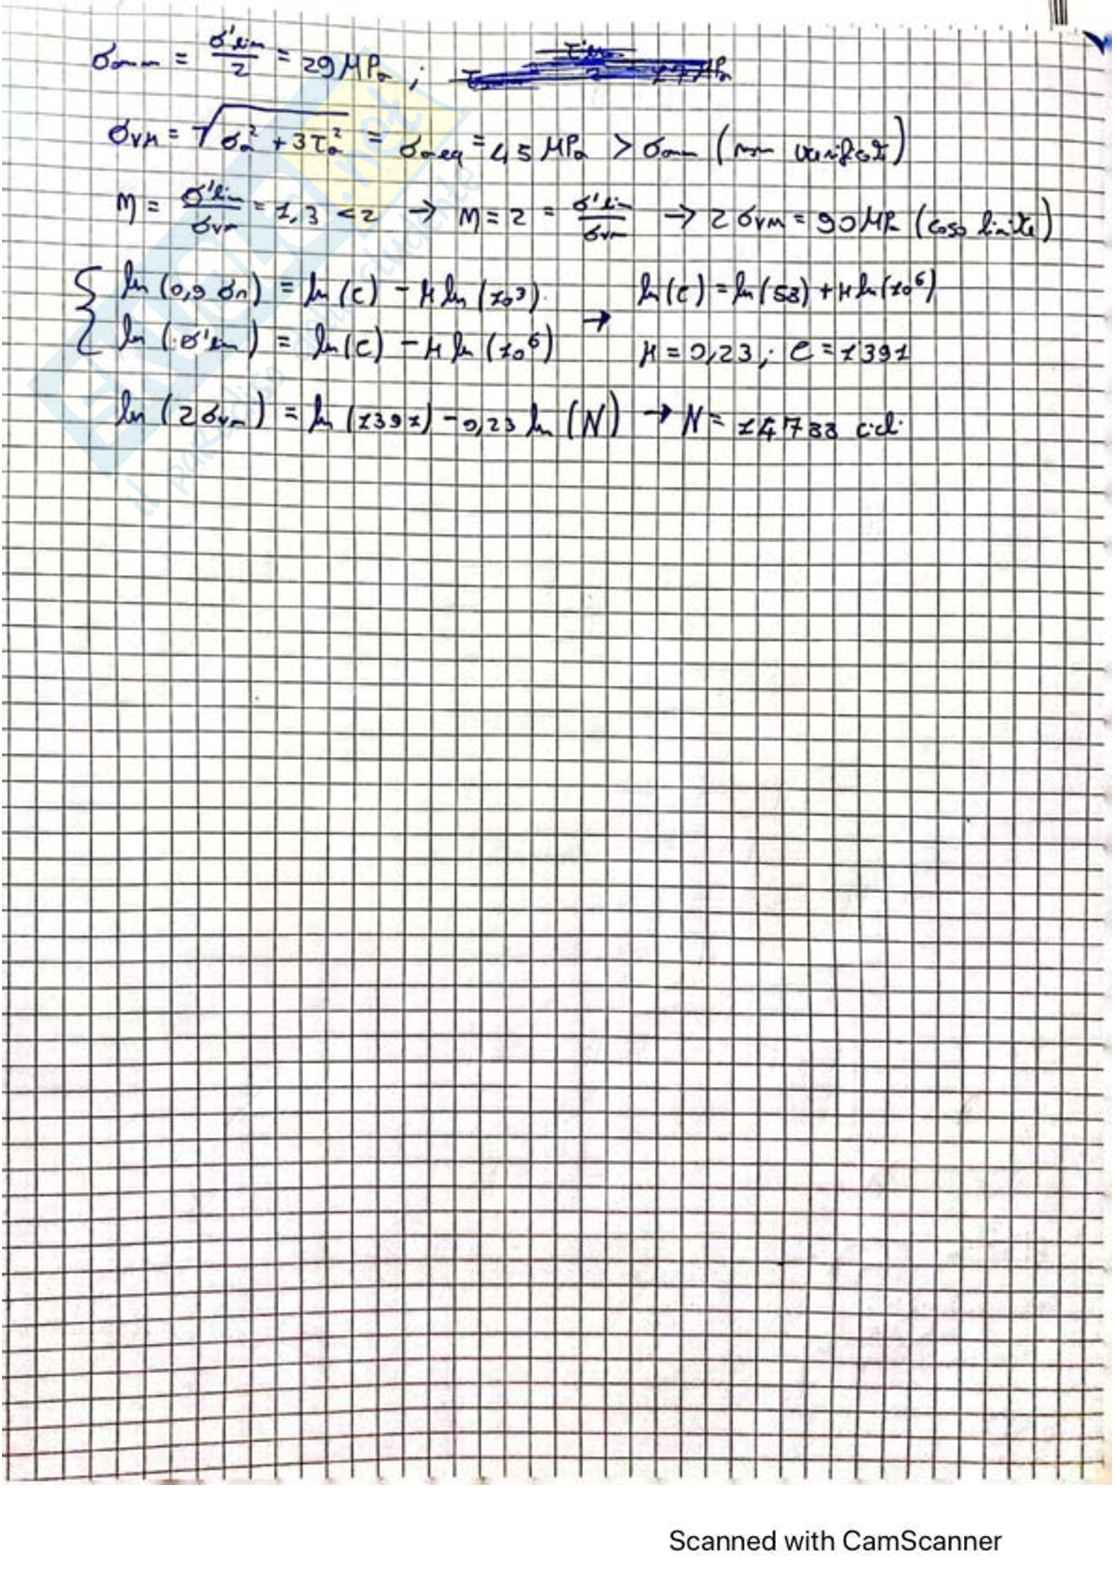 σamm = σ'lim/2 = 29 MPa ;
σVM = √(σa² + 3τa²) = σa eq = 45 MPa > σamm (non verificato)
η = σ'lim/σVM = 1,3 < 2 → η = 2 = σ'lim/σVM → 2 σVM = 90 MPa (caso limite)
{ ln (0,9 σn) = ln (C) - K ln (10³) → ln (C) = ln (58) + K ln (10⁶)
ln (σ'lim) = ln (C) - K ln (10⁶) K = 0,23 ; C = 1391
ln (2 σVM) = ln (1391) - 0,23 ln (N) → N = 14788 cicli
Scanned with CamScanner